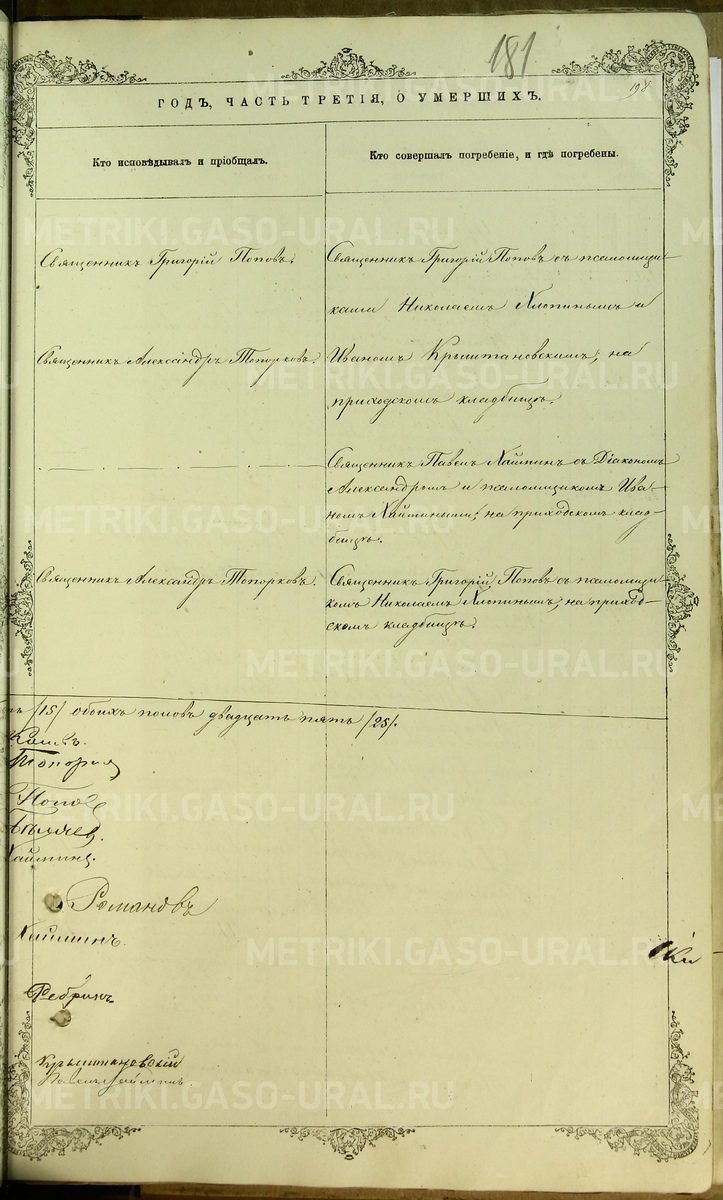 181
198
ГОДЪ, ЧАСТЬ ТРЕТІЯ, О УМЕРШИХЪ.
Кто исповѣдывалъ и пріобщалъ.
Кто совершалъ погребеніе, и гдѣ погребены.
Священникъ Григорій Поповъ.
Священникъ Григорій Поповъ съ псаломщи-
ками Николаемъ Хлопинымъ и
Священникъ Александръ Топорковъ.
Иваномъ Крыштановскимъ, на
приходскомъ кладбищѣ.
Священникъ Павелъ съ Діакономъ
Александромъ и псаломщикомъ Ива-
номъ на приходскомъ клад-
бищѣ.
Священникъ Александръ Топорковъ.
Священникъ Григорій Поповъ съ псаломщи-
комъ Николаемъ Хлопинымъ, на приход-
скомъ кладбищѣ.
/15/ обоихъ половъ двадцать пять /25/.
Романовъ
Ребринъ
Крыштановскій
METRIKI.GASO-URAL.RU